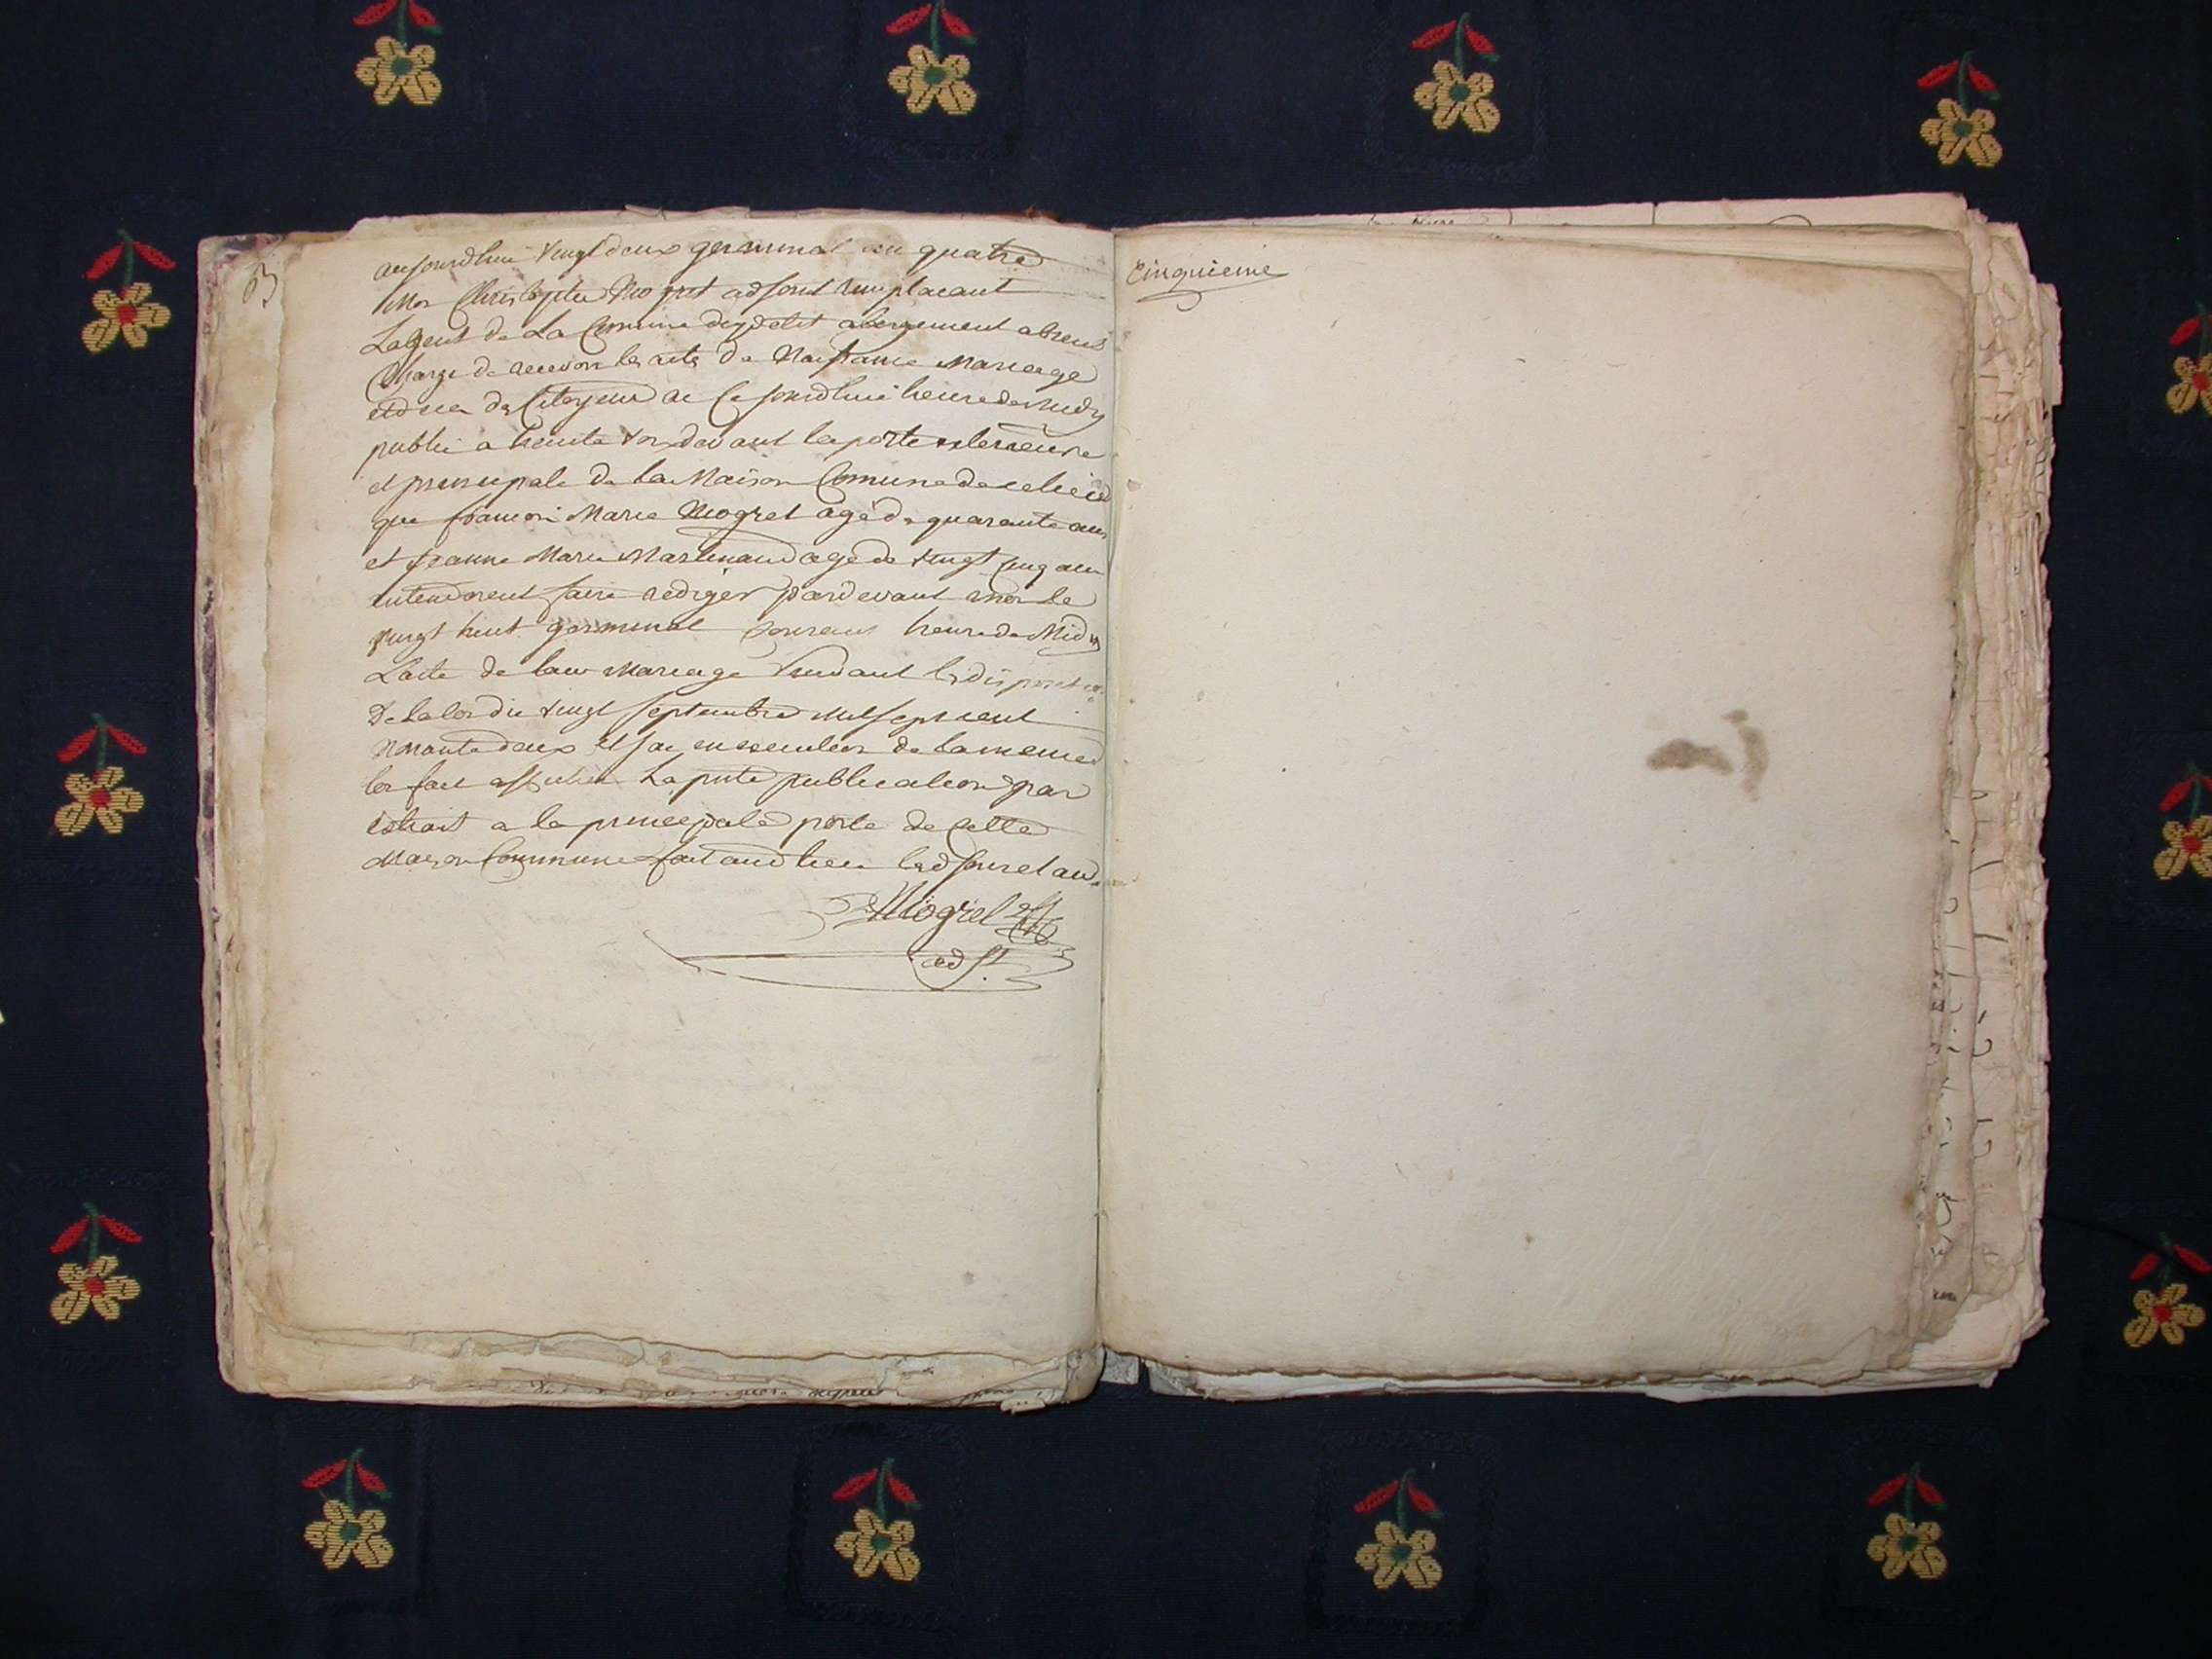 aujourdhui vingt deux germinal an quatre
Moi Christophe Mogret adjoint remplacant
Lagent de La Comune de abergement absent
Charge de recevoir les actes de Naissance Mariage
et deces des Citoyens ai ce jourdhui heure de midy
publié a haute voix devant la porte exterieure
et principale de la Maison Comune de ce lieu
que francois Marie Mogret agé de quarante ans
et jeanne Marie Martinand agé de vingt cinq ans
entendoient faire rediger pardevant moi le
vingt huit germinal courant heure de Midy
Lacte de leur Mariage suivant les disposition
De la loi du vingt Septembre mil sept cent
Nonante deux et jai en execution de la meme
loi fait afficher La pnte publication par
extrait a la principale porte de cette
Maison Commune fait aud lieu led jour et an
Mogret
adjt
Cinquieme